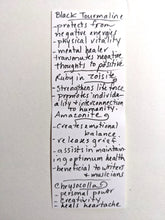 Black Tourmaline
- protects from
negative energies
- physical vitality
- mental healer
- transmutes negative
thoughts to positive.
Ruby in Zoisite
- Strengthens life force
- promotes individu-
ality + interconnection
to humanity.
Amazonite
- creates emotional
balance
- releases grief
- assists in maintain
ing optimum health
- beneficial to writers
& musicians
Chrysocolla
- personal power
- creativity
- heals heartache